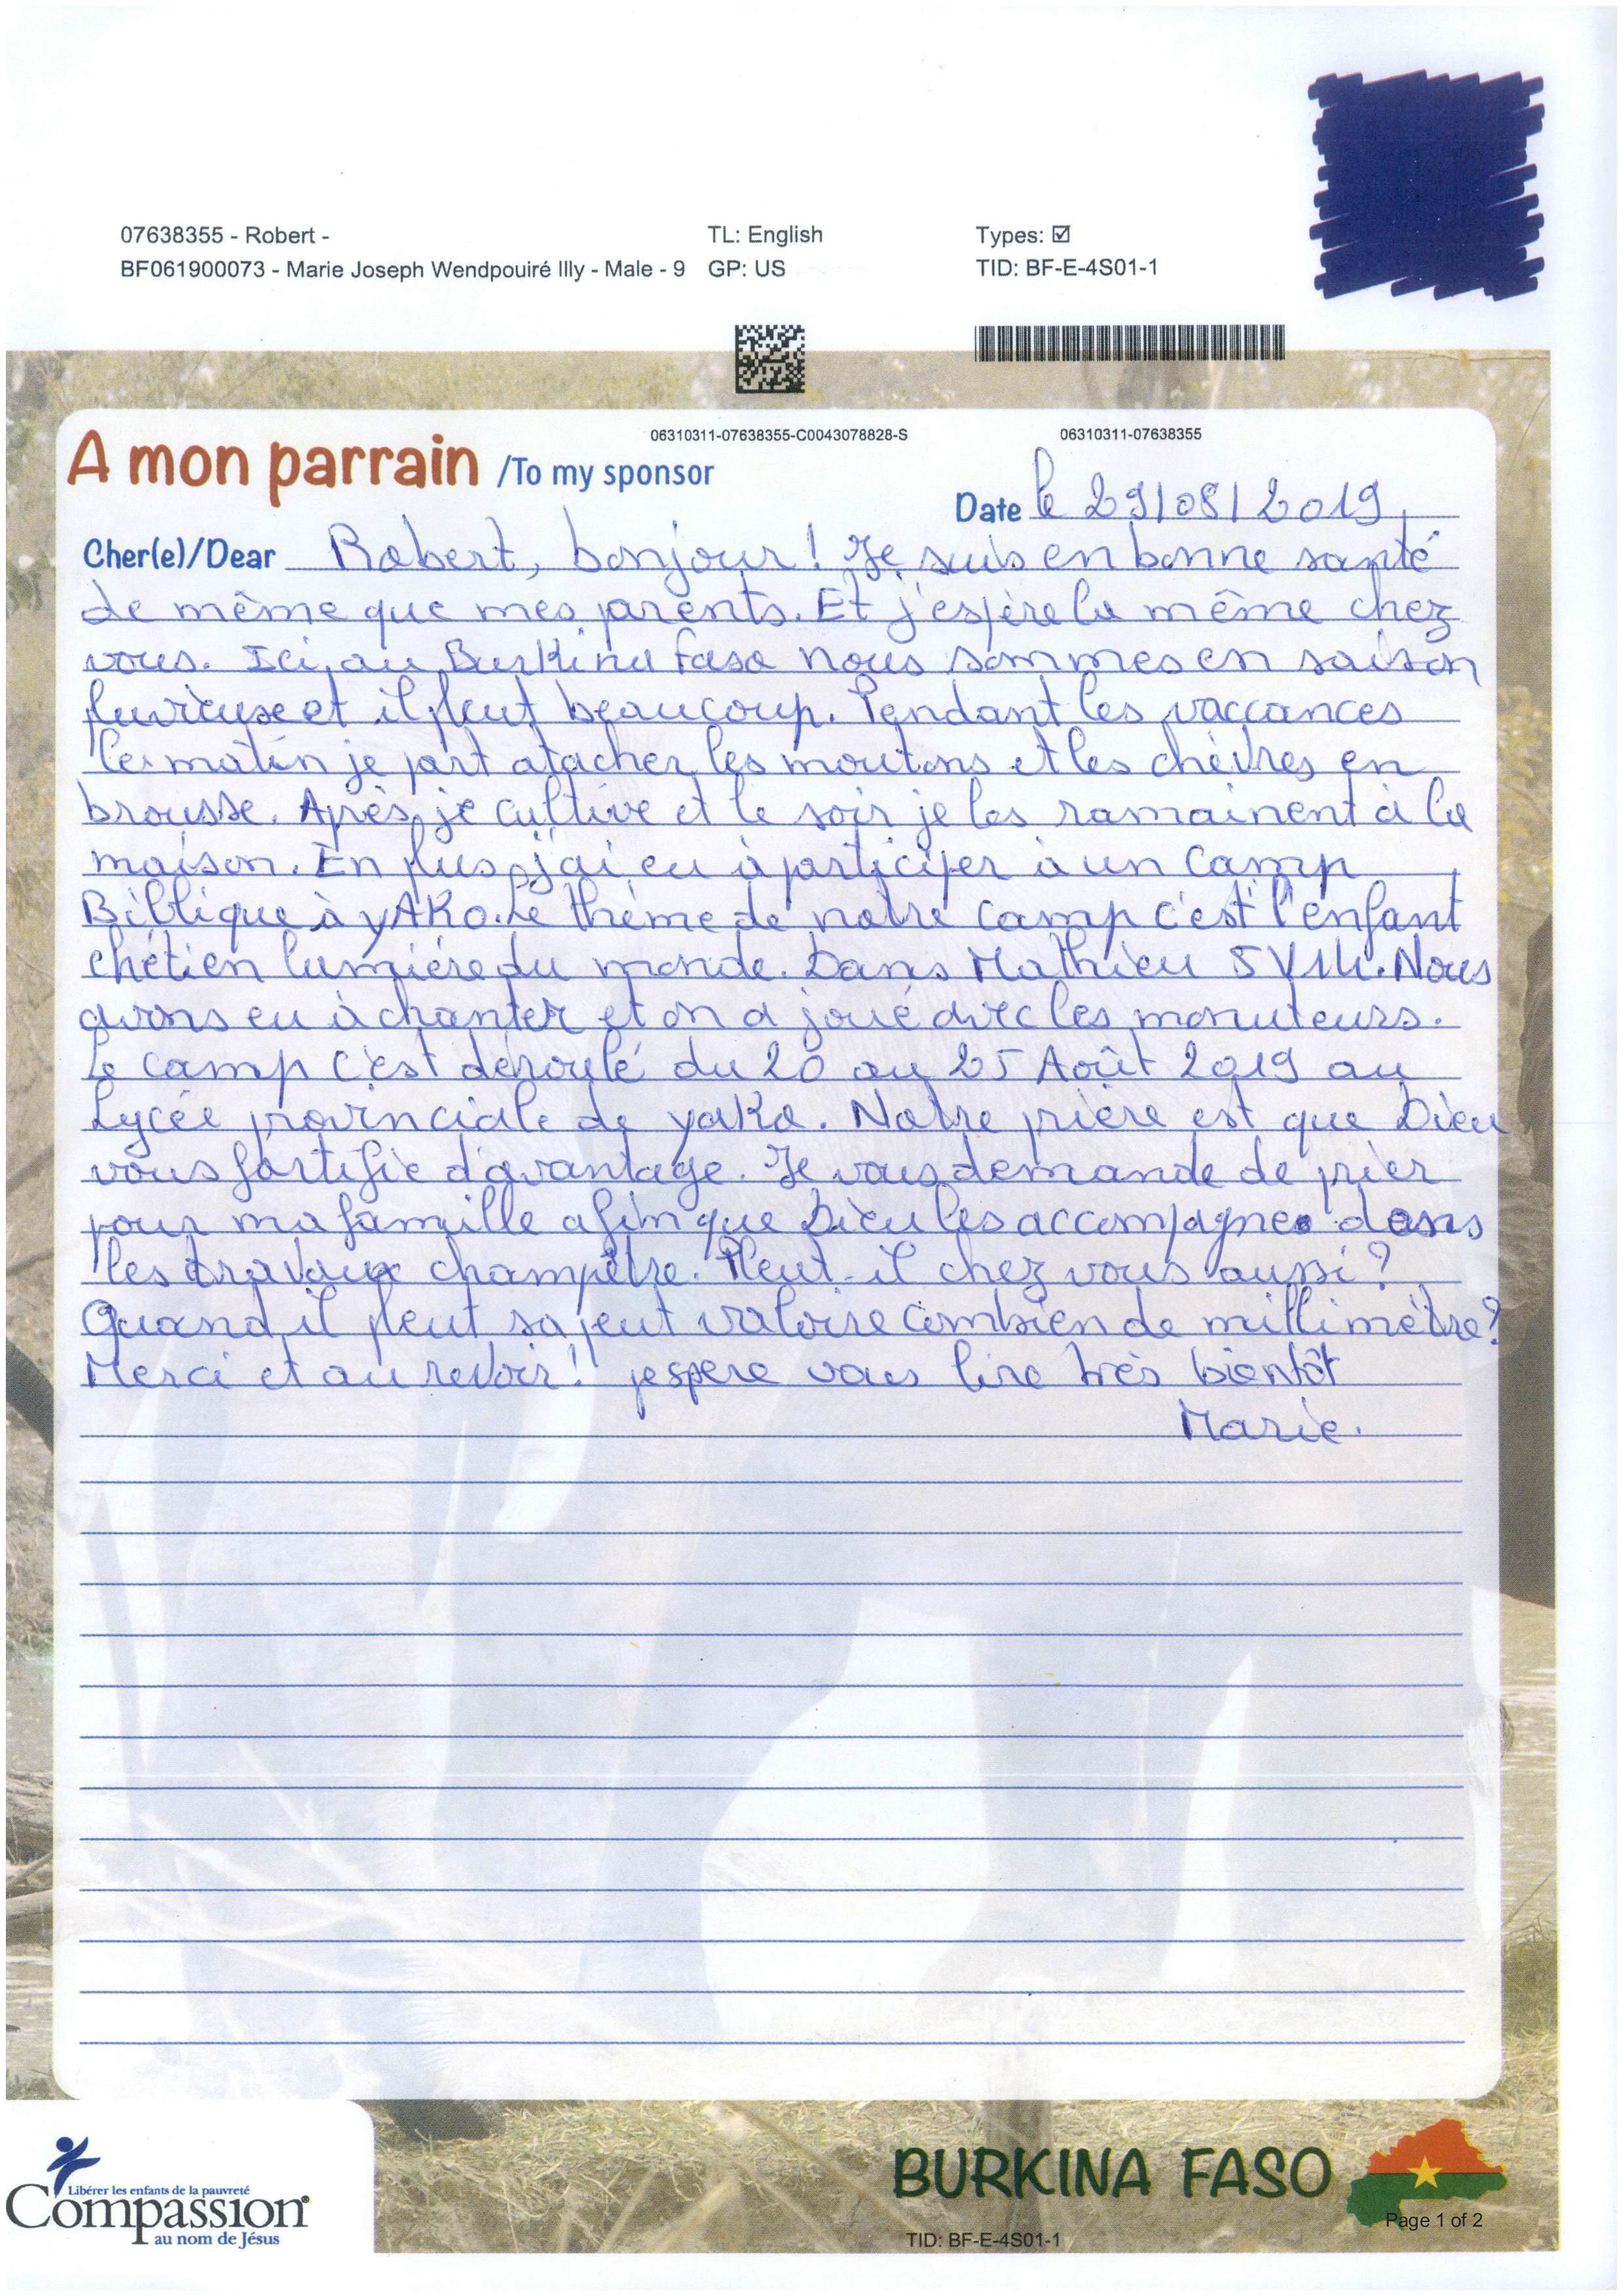 07638355 - Robert -
TL: English
Types: ☑
BF061900073 - Marie Joseph Wendpouiré Illy - Male - 9
GP: US
TID: BF-E-4S01-1
06310311-07638355-C0043078828-S
06310311-07638355
A mon parrain /To my sponsor
Date le 29/08/2019
Cher(e)/Dear Robert, bonjour ! Je suis en bonne santé
de même que mes parents. Et j'espère le même chez
vous. Ici au Burkina Faso nous sommes en saison
pluvieuse et il pleut beaucoup. Pendant les vaccances
le matin je part atacher les moutons et les chèvres en
brousse. Après je cultive et le soir je les ramainent à la
maison. En plus j'ai eu à participer à un camp
Biblique à yAKo. Le thème de notre camp c'est l'enfant
chétien lumière du monde. Dans Mathieu 5 V14. Nous
avons eu à chanter et on a joué avec les monuteurs.
Le camp c'est déroulé du 20 au 25 Août 2019 au
Lycée provinciale de yako. Notre prière est que Dieu
vous fortifie d'avantage. Je vous demande de prier
pour ma famille afin que Dieu les accompagne dans
les travaux champêtre. Pleut-il chez vous aussi ?
Quand il pleut sa peut valoire combien de millimètre ?
Merci et au revoir ! jespere vous lire très bientôt
Marie.
Libérer les enfants de la pauvreté
Compassion
au nom de Jésus
BURKINA FASO
Page 1 of 2
TID: BF-E-4S01-1